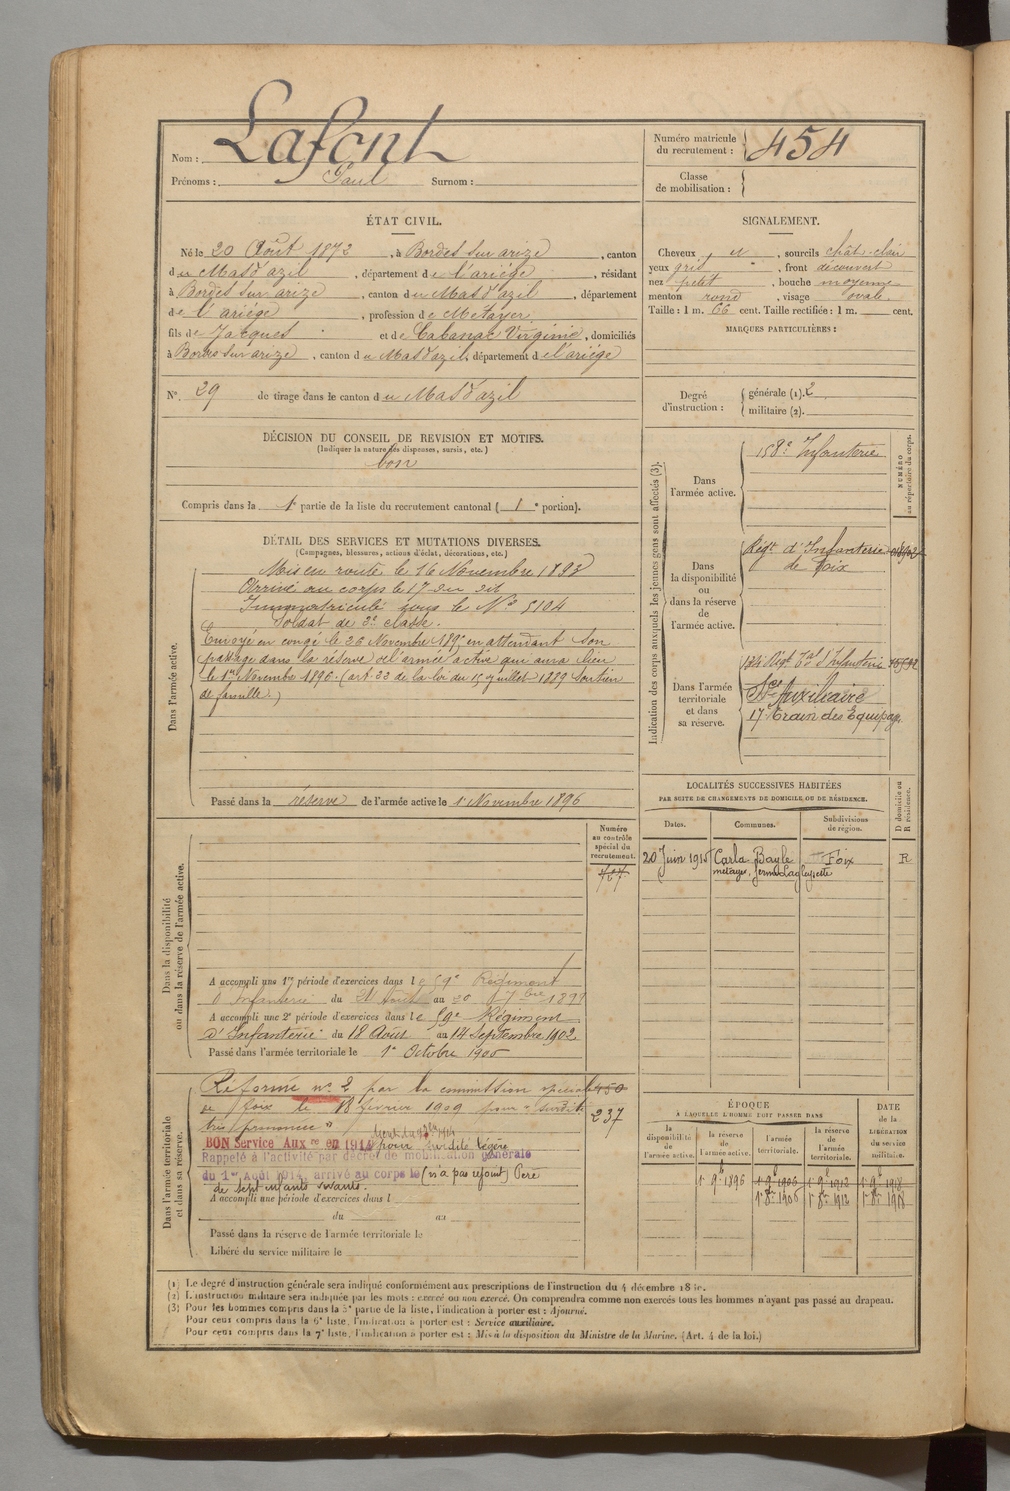 Nom : Lafont
Prénoms : Paul Surnom :
Numéro matricule du recrutement : 454
Classe de mobilisation :
ÉTAT CIVIL.
Né le 20 Août 1872, à Bordes sur arize, canton
du Mas d'azil, département de l'ariége, résidant
à Bordes sur arize, canton du Mas d'azil, département
de l'ariége, profession de Metayer
fils de Jacques et de Cabanac Virginie, domiciliés
à Bordes sur arize, canton du Mas d'azil, département de l'ariége
N° 29 de tirage dans le canton du Mas d'azil
SIGNALEMENT.
Cheveux et, sourcils chât. clair
yeux gris, front découvert
nez petit, bouche moyenne
menton rond, visage ovale.
Taille : 1 m. 66 cent. Taille rectifiée : 1 m. cent.
MARQUES PARTICULIÈRES :
Degré d'instruction : générale (1). 2
militaire (2).
DÉCISION DU CONSEIL DE REVISION ET MOTIFS.
(Indiquer la nature des dispenses, sursis, etc.)
bon
Compris dans la 1e partie de la liste du recrutement cantonal ( 1e portion).
DÉTAIL DES SERVICES ET MUTATIONS DIVERSES.
(Campagnes, blessures, actions d'éclat, décorations, etc.)
Dans l'armée active.
Mis en route le 16 Novembre 1893
Arrivé au corps le 17 du dit
Immatriculé sous le N° 5104
Soldat de 2e classe.
Envoyé en congé le 26 Novembre 189 en attendant son
passage dans la réserve de l'armée active qui aura lieu
le 1er Novembre 1896. (art. 22 de la loi du 15 juillet 1889 soutien
de famille.)
Passé dans la réserve de l'armée active le 1 Novembre 1896
Indication des corps auxquels les jeunes gens sont affectés (3).
NUMÉRO au répertoire du corps.
Dans l'armée active.
158e Infanterie
Dans la disponibilité ou dans la réserve de l'armée active.
Régt d'Infanterie
de Foix
Dans l'armée territoriale et dans sa réserve.
134 Régt Tal d'Infanterie
Sce Auxiliaire
17 Train des Equipages
LOCALITÉS SUCCESSIVES HABITÉES
PAR SUITE DE CHANGEMENTS DE DOMICILE OU DE RÉSIDENCE.
D domicile ou R résidence.
Dates. Communes. Subdivisions de région.
20 Juin 1915 Carla Bayle Foix R
métayer, ferme
Numéro au contrôle spécial du recrutement.
Dans la disponibilité ou dans la réserve de l'armée active.
A accompli une 1re période d'exercices dans le 59e Régiment
d'Infanterie du Août au 20 7bre 1899
A accompli une 2e période d'exercices dans le 59e Régiment
d'Infanterie du 18 Août au 14 Septembre 1902
Passé dans l'armée territoriale le 1er Octobre 1906
Dans l'armée territoriale et dans sa réserve.
Réformé n° 2 par la commission spéciale 450
de foix le 18 février 1909 pour "surdité 237
très prononcée"
BON Service Auxre en 1914 pour surdité légère
Rappelé à l'activité par décret de mobilisation générale
du 1er Août 1914, arrivé au corps le (n'a pas rejoint) Père
de sept enfants vivants.
A accompli une période d'exercices dans l
du au
Passé dans la réserve de l'armée territoriale le
Libéré du service militaire le
ÉPOQUE
À LAQUELLE L'HOMME DOIT PASSER DANS
la disponibilité de l'armée active. la réserve de l'armée active. l'armée territoriale. la réserve de l'armée territoriale.
DATE de la LIBÉRATION du service militaire.
1 9b 1896 1 9b 1906 1 9b 1912 1 9b 1918
1 8bre 1906 1 8bre 1912 1 8bre 1918
(1) Le degré d'instruction générale sera indiqué conformément aux prescriptions de l'instruction du 4 décembre 18
(2) L'instruction militaire sera indiquée par les mots : exercé ou non exercé. On comprendra comme non exercés tous les hommes n'ayant pas passé au drapeau.
(3) Pour les hommes compris dans la 5e partie de la liste, l'indication à porter est : Ajourné.
Pour ceux compris dans la 6e liste, l'indication à porter est : Service auxiliaire.
Pour ceux compris dans la 7e liste, l'indication à porter est : Mis à la disposition du Ministre de la Marine. (Art. 4 de la loi.)